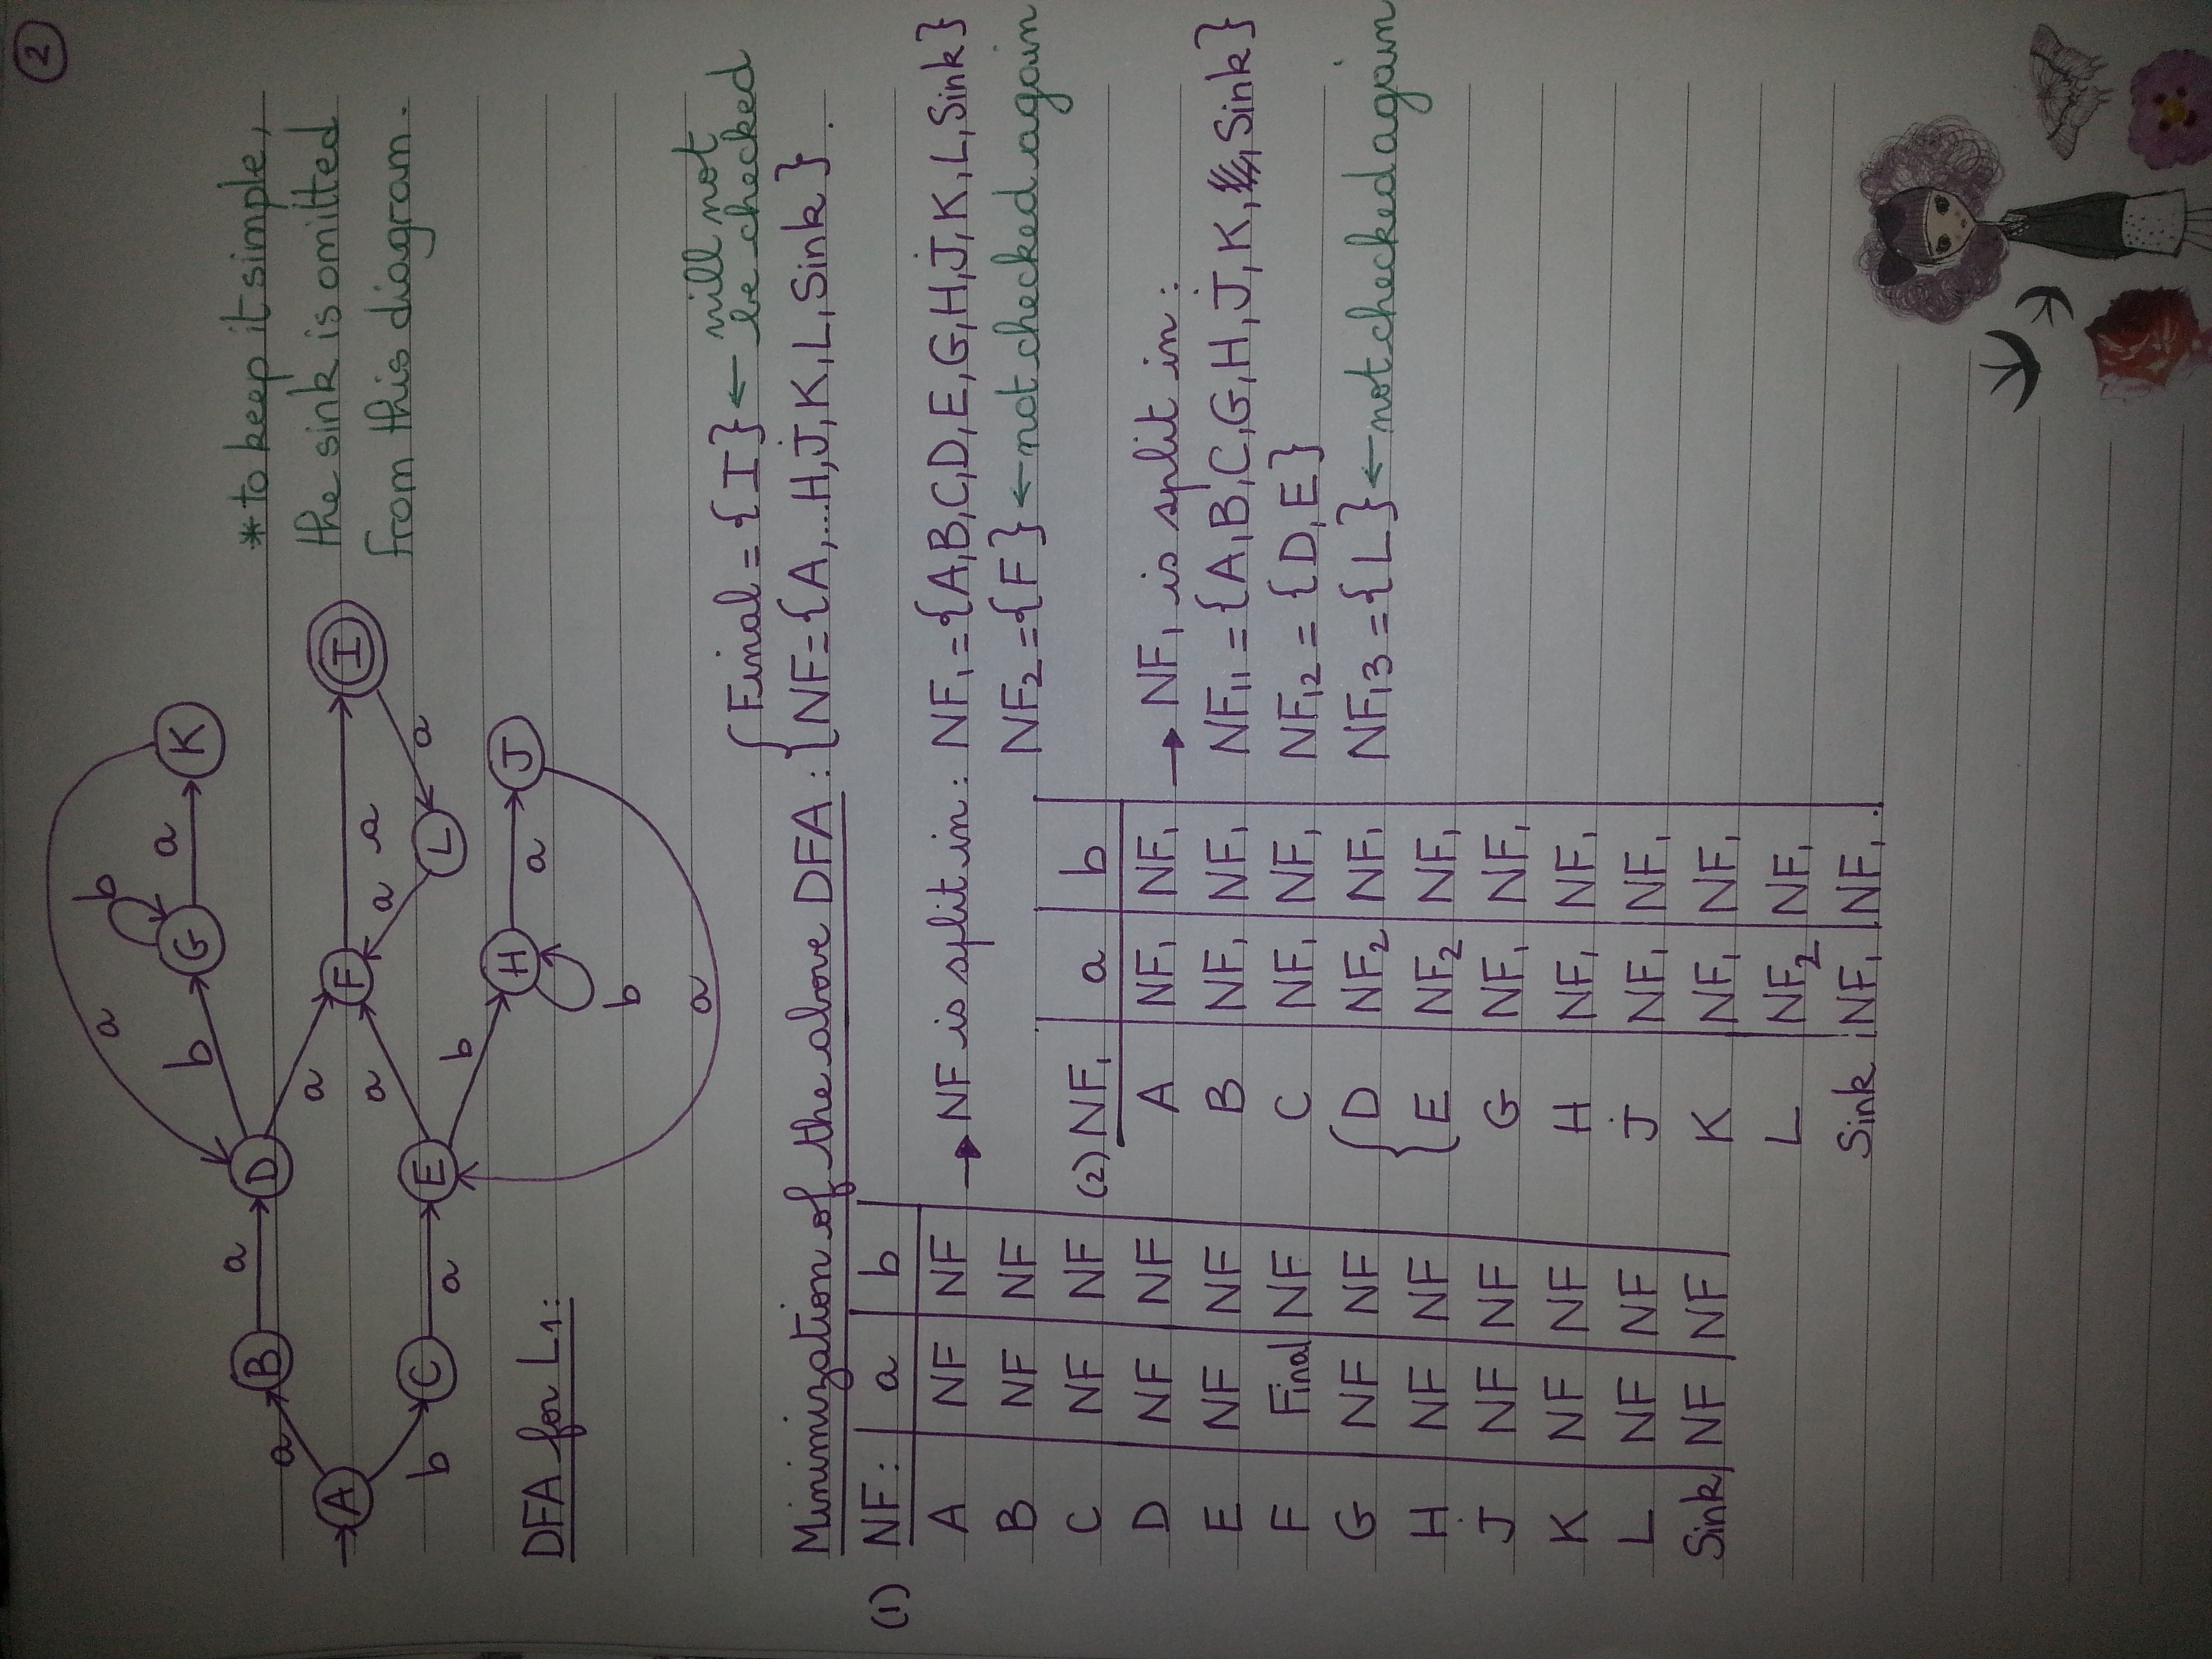 2
* to keep it simple,
the sink is omitted
from this diagram.
a
b
K
a
G
b
D
a
B
a
A
b
C
a
E
a
a
F
a
I
a
L
a
b
H
b
a
J
a
DFA for L1:
Minimization of the above DFA: { Final = {I} ← will not be checked
NF = {A,...H,J,K,L,Sink}.
(1) NF: a b
A NF NF
B NF NF
C NF NF
D NF NF
E NF NF
F Final NF
G NF NF
H NF NF
J NF NF
K NF NF
L NF NF
Sink NF NF
→ NF is split in: NF1 = {A,B,C,D,E,G,H,J,K,L,Sink}
NF2 = {F} ← not checked again
(2) NF1 a b
A NF1 NF1
B NF1 NF1
C NF1 NF1
D NF2 NF1
E NF2 NF1
G NF1 NF1
H NF1 NF1
J NF1 NF1
K NF1 NF1
L NF2 NF1
Sink NF1 NF1.
→ NF1 is split in:
NF11 = {A,B,C,G,H,J,K,Sink}
NF12 = {D,E}
NF13 = {L} ← not checked again